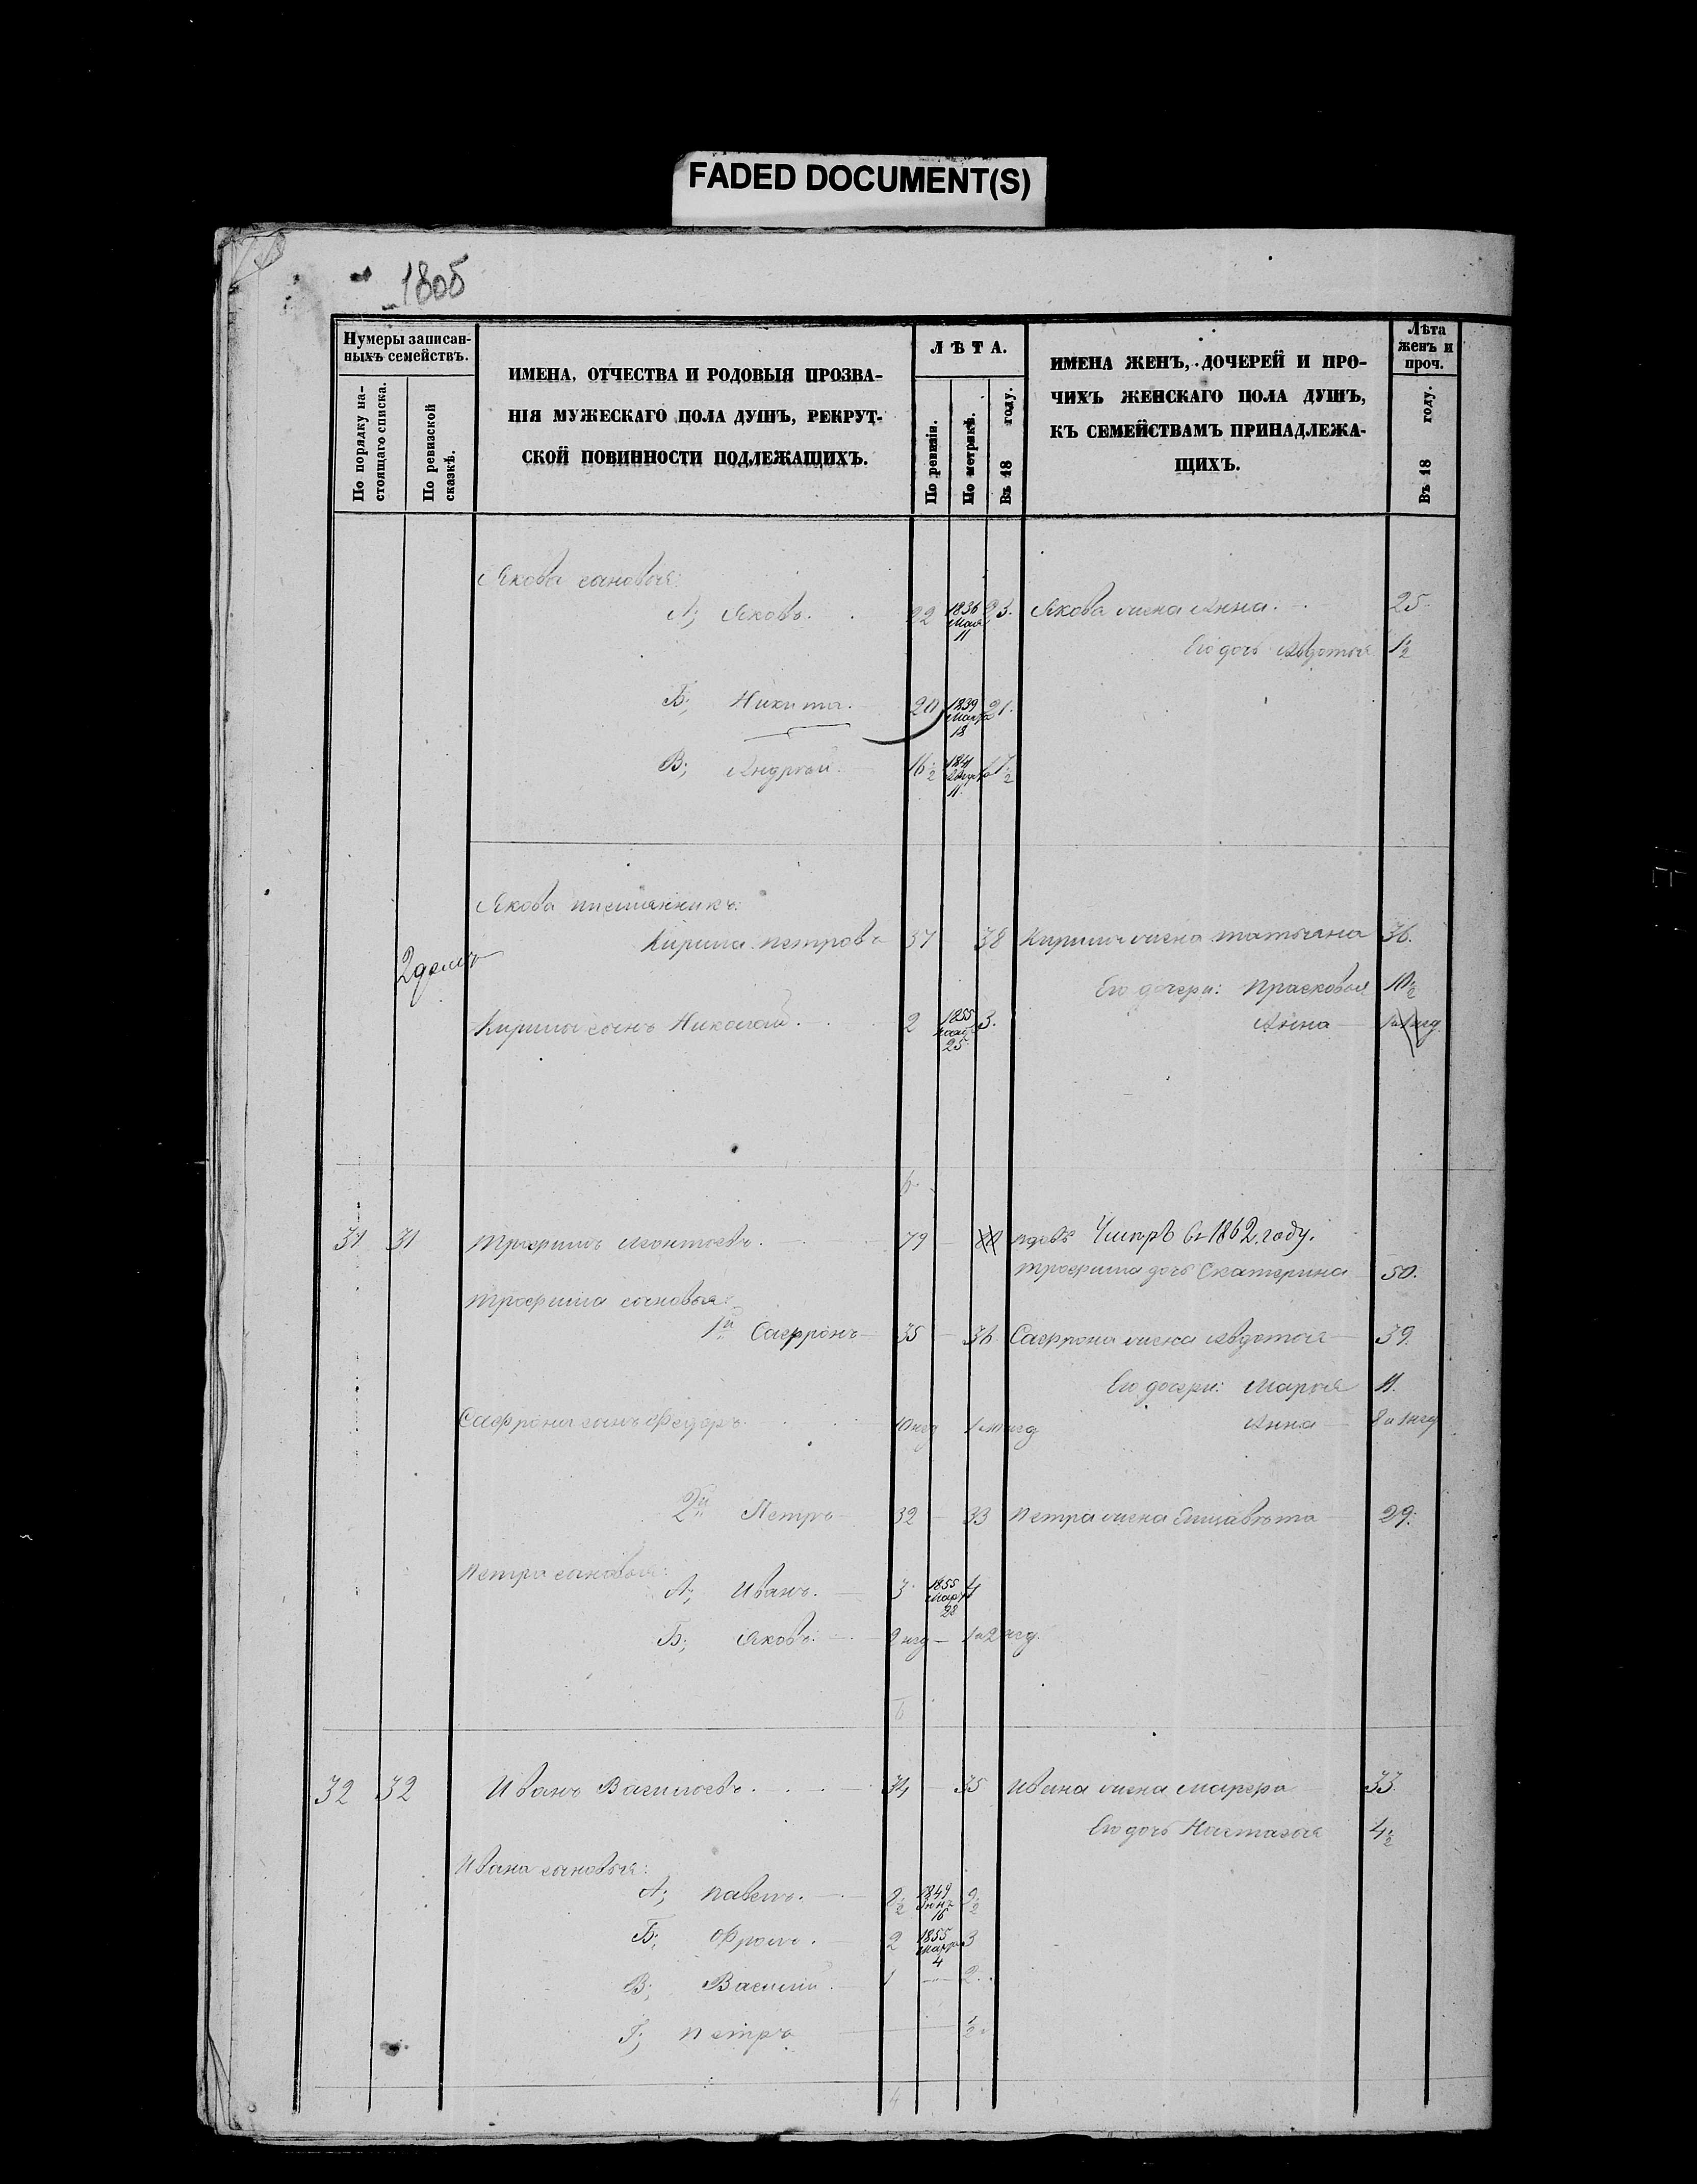 FADED DOCUMENT(S)
1805
Нумеры записан-
ныхъ семействъ.
По порядку на-
стоящаго списка.
По ревизской
сказкѣ.
ИМЕНА, ОТЧЕСТВА И РОДОВЫЯ ПРОЗВА-
НІЯ МУЖЕСКАГО ПОЛА ДУШЪ, РЕКРУТ-
СКОЙ ПОВИННОСТИ ПОДЛЕЖАЩИХЪ.
ЛѢТА.
По ревизіи.
По метрикѣ.
Въ 18 году.
ИМЕНА ЖЕНЪ, ДОЧЕРЕЙ И ПРО-
ЧИХЪ ЖЕНСКАГО ПОЛА ДУШЪ,
КЪ СЕМЕЙСТВАМЪ ПРИНАДЛЕЖА-
ЩИХЪ.
Лѣта
женъ и
проч.
Въ 18 году.
Якова сыновья:
А; Яковъ. 22 1836 Мая 11 23. Якова жена Анна. 25.
Его дочь Авдотья 1½
Б; Никита. 20 1839 Марта 18 21.
В; Андрей. 16½ 1841 11 17½
Якова племянникъ:
Кирила Петровъ 37 38 Кирила жена Татьяна 36.
Его дочери: Прасковья 10½
Кирила сынъ Николай. 2 1855 25 3. Анна
6.
31 31 Трофимъ Леонтьевъ. 79 80 вдовъ Умеръ въ 1862 году.
Трофима дочь Екатерина 50.
Трофима сыновья:
1й Сафронъ 35 36 Сафрона жена Авдотья 39.
Его дочери: Марья 11.
Сафрона сынъ Федоръ. 10 нед 1 и 10 нед Анна 8 и 1 нед
2й Петръ 32 33 Петра жена Елизавета 29.
Петра сыновья:
А; Иванъ. 3 1855 Март 28 4
Б; Яковъ. 2 нед 1 и 2 нед.
6
32 32 Иванъ Васильевъ. 34 35 Ивана жена Марфа 33.
Его дочь Настасья 4½
Ивана сыновья:
А; Павелъ. 8½ 1849 Іюня 16 9½
Б; Фролъ. 2 1855 Марта 4 3
В; Василій. 1 2.
Г; Петръ ½.
4